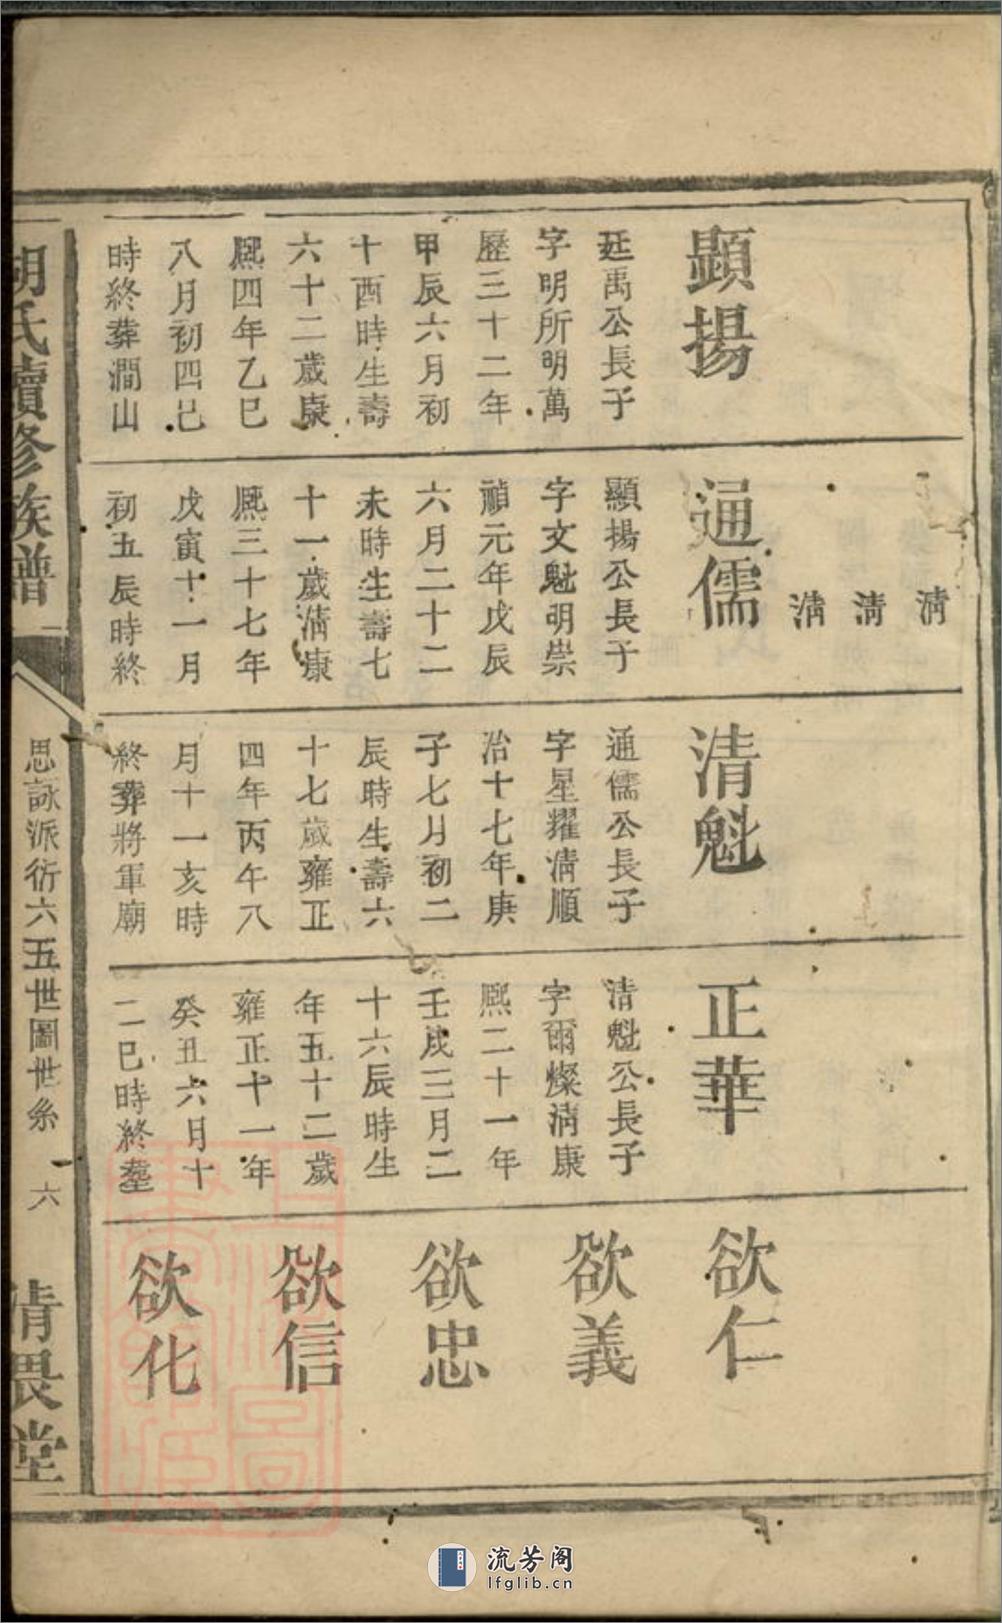 顯揚
廷禹公長子
字明所明萬
歷三十二年
甲辰六月初
十酉時生壽
六十二歲康
熙四年乙巳
八月初四巳
時終葬澗山
通儒
顯揚公長子
字文魁明崇
禎元年戊辰
六月二十二
未時生壽七
十一歲淸康
熙三十七年
戊寅十一月
初五辰時終
淸
淸
淸
清魁
通儒公長子
字星耀淸順
治十七年庚
子七月初二
辰時生壽六
十七歲雍正
四年丙午八
月十一亥時
終葬將軍廟
正華
清魁公長子
字爾燦淸康
熙二十一年
壬戌三月二
十六辰時生
年五十二歲
雍正十一年
癸丑六月十
二巳時終塟
欲仁
欲義
欲忠
欲信
欲化
胡氏續修族譜
思詠派衍六五世圖世系 六
清畏堂
上海圖書館藏
流芳阁
lfglib.cn